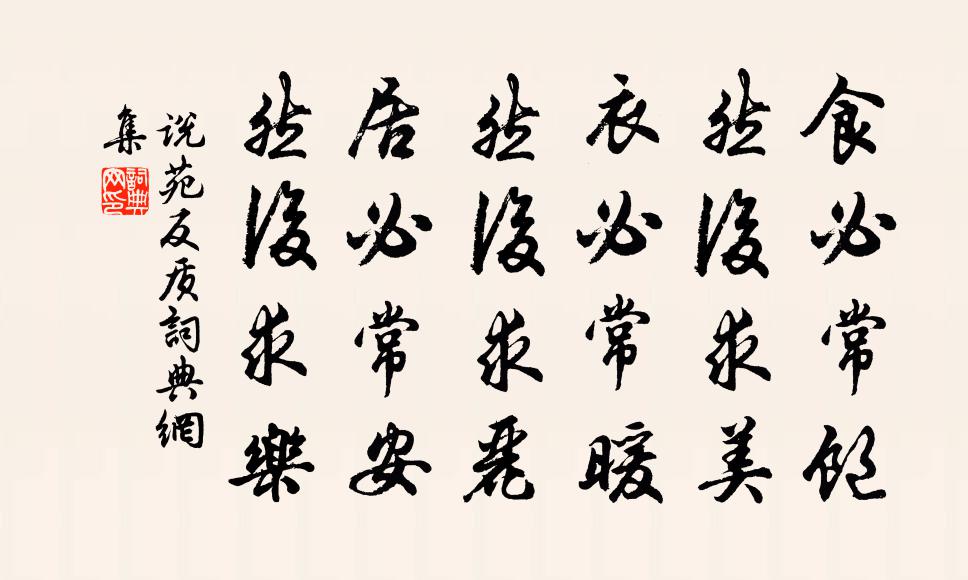 食必常飽
然後求美
衣必常暖
然後求麗
居必常安
然後求樂
说苑反质詞典網
集
詞典
网印